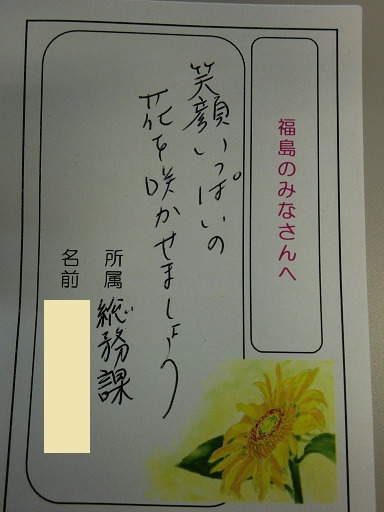 福島のみなさんへ
笑顔いっぱいの
花を咲かせましょう
所属 総務課
名前